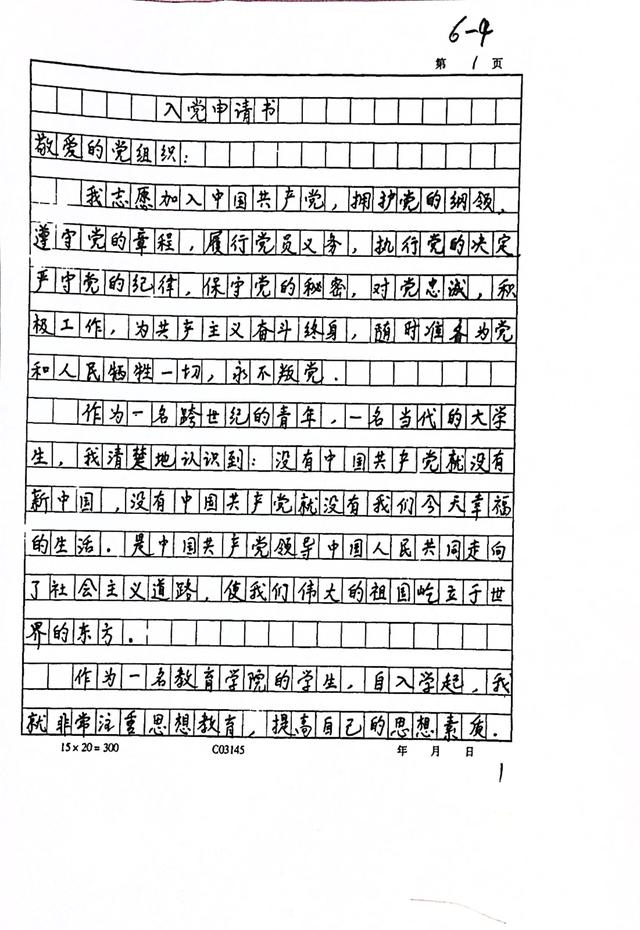 6-4
第 1 页
入党申请书
敬爱的党组织:
我志愿加入中国共产党，拥护党的纲领，
遵守党的章程，履行党员义务，执行党的决定
严守党的纪律，保守党的秘密，对党忠诚，积
极工作，为共产主义奋斗终身，随时准备为党
和人民牺牲一切，永不叛党.
作为一名跨世纪的青年，一名当代的大学
生，我清楚地认识到：没有中国共产党就没有
新中国，没有中国共产党就没有我们今天幸福
的生活.是中国共产党领导中国人民共同走向
了社会主义道路，使我们伟大的祖国屹立于世
界的东方.
作为一名教育学院的学生，自入学起，我
就非常注重思想教育，提高自己的思想素质.
15×20=300 C03145 年 月 日
1